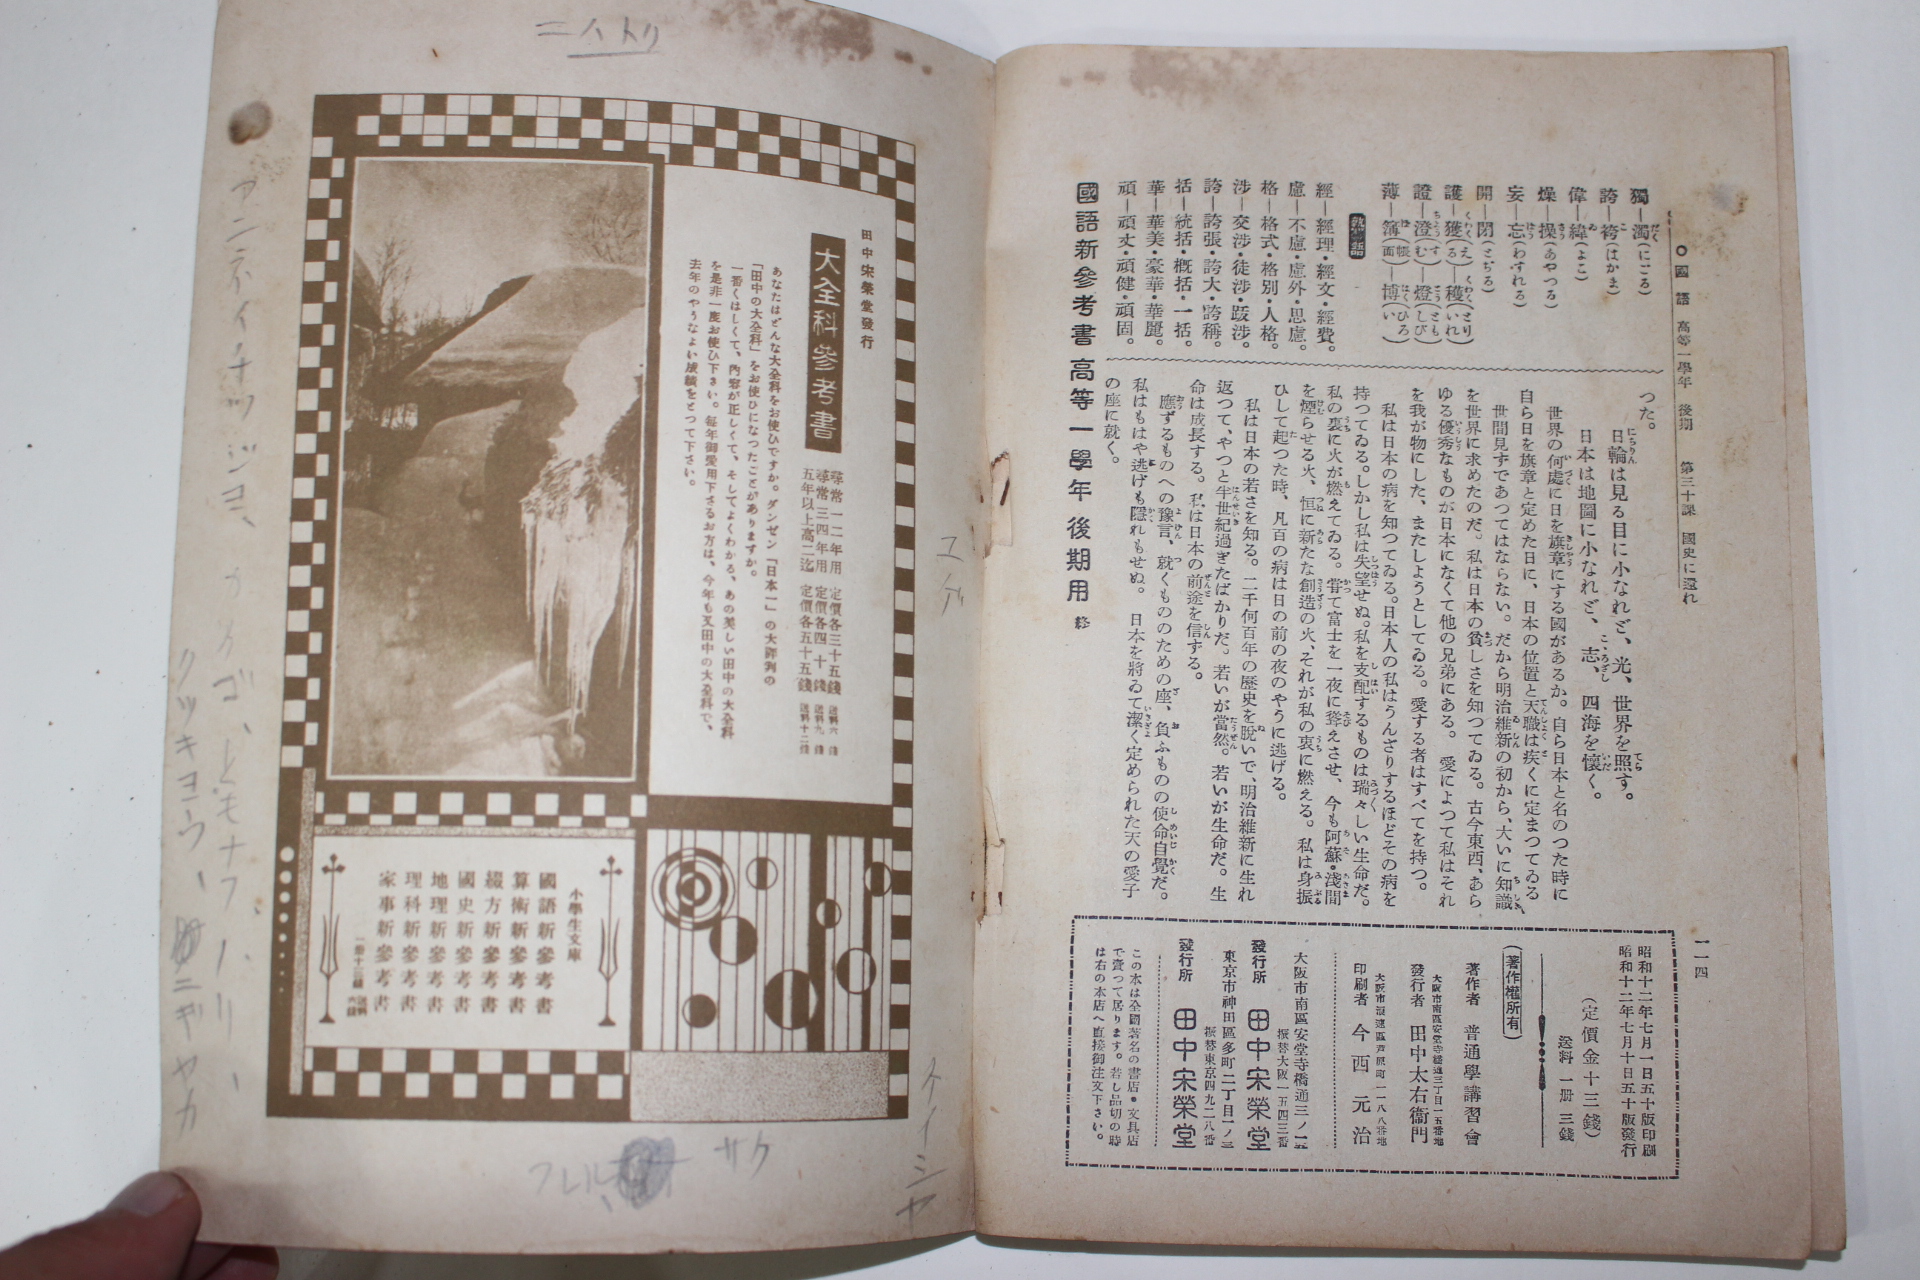 ○國語 高等一學年 後期 第三十課 國史に還れ
一一四
獨―濁(にごる)
誇―袴(はかま)
偉―緯(よこ)
燥―操(あやつる)
妄―忘(わすれる)
開―閉(とぢる)
護―獲(える)―穫(とりいれ)
證―澄(すむ)―燈(ともしび)
薄―簿(帳面)―博(ひろい)
經―經理・經文・經費。
慮―不慮・慮外・思慮。
格―格式・格別・人格。
涉―交涉・徒涉・跋涉。
誇―誇張・誇大・誇稱。
括―統括・概括・一括。
華―華美・豪華・華麗。
頑―頑丈・頑健・頑固。
國語新參考書高等一學年後期用 終
つた。
日輪は見る目に小なれど、光、世界を照す。
日本は地圖に小なれど、志、四海を懷く。
世界の何處に日を旗章にする國があるか。自ら日本と名のつた時に
自ら日を旗章と定めた日に、日本の位置と天職は疾くに定まつてゐる
世間見ずであつてはならない。だから明治維新の初から、大いに知識
を世界に求めたのだ。私は日本の貧しさを知つてゐる。古今東西、あら
ゆる優秀なものが日本になくて他の兄弟にある。愛によつて私はそれ
を我が物にした、またしようとしてゐる。愛する者はすべてを持つ。
私は日本の病を知つてゐる。日本人の私はうんざりするほどその病を
持つてゐる。しかし私は失望せぬ。私を支配するものは瑞々しい生命だ。
私の裏に火が燃えてゐる。嘗て富士を一夜に聳えさせ、今も阿蘇・淺間
を煙らせる火、恒に新たな創造の火、それが私の衷に燃える。私は身振
ひして起つた時、凡百の病は日の前の夜のやうに逃げる。
私は日本の若さを知る。二千何百年の歷史を脫いで、明治維新に生れ
返つて、やつと半世紀過ぎたばかりだ。若いが當然。若いが生命だ。生
命は成長する。私は日本の前途を信ずる。
應ずるものへの豫言、就くもののための座、負ふものの使命自覺だ。
私はもはや逃げも隱れもせぬ。日本を將ゐて潔く定められた天の愛子
の座に就く。
昭和十二年七月一日五十版印刷
昭和十二年七月十日五十版發行
(定價金十三錢)
送料 一册 三錢
(著作權所有)
著作者 普通學講習會
大阪市南區安堂寺橋通三丁目一五番地
發行者 田中太右衞門
大阪市浪速區芦原町一一八八番地
印刷者 今西元治
大阪市南區安堂寺橋通三ノ一五
發行所 田中宋榮堂
振替大阪一五四三番
東京市神田區多町二丁目一ノ三
發行所 田中宋榮堂
振替東京四九二八番
この本は全國著名の書店・文具店
で賣つて居ります。若し品切の時
は右の本店へ直接御注文下さい。
田中宋榮堂發行
大全科參考書
尋常一二年用 定價各三十五錢 送料六錢
尋常三四年用 定價各四十錢 送料九錢
五年以上高二迄 定價各五十五錢 送料十二錢
あなたはどんな大全科をお使ひですか。ダンゼン「日本一」の大評判の
「田中の大全科」をお使ひになつたことがありますか。
一番くはしくて、內容が正しくて、そしてよくわかる、あの美しい田中の大全科
を是非一度お使ひ下さい。每年御愛用下さるお方は、今年も又田中の大全科で、
去年のやうなよい成績をとつて下さい。
小學生文庫
國語新參考書
算術新參考書
綴方新參考書
國史新參考書
地理新參考書
理科新參考書
家事新參考書
一册十三錢 送料六錢
ニハトリ
ユデ
サク